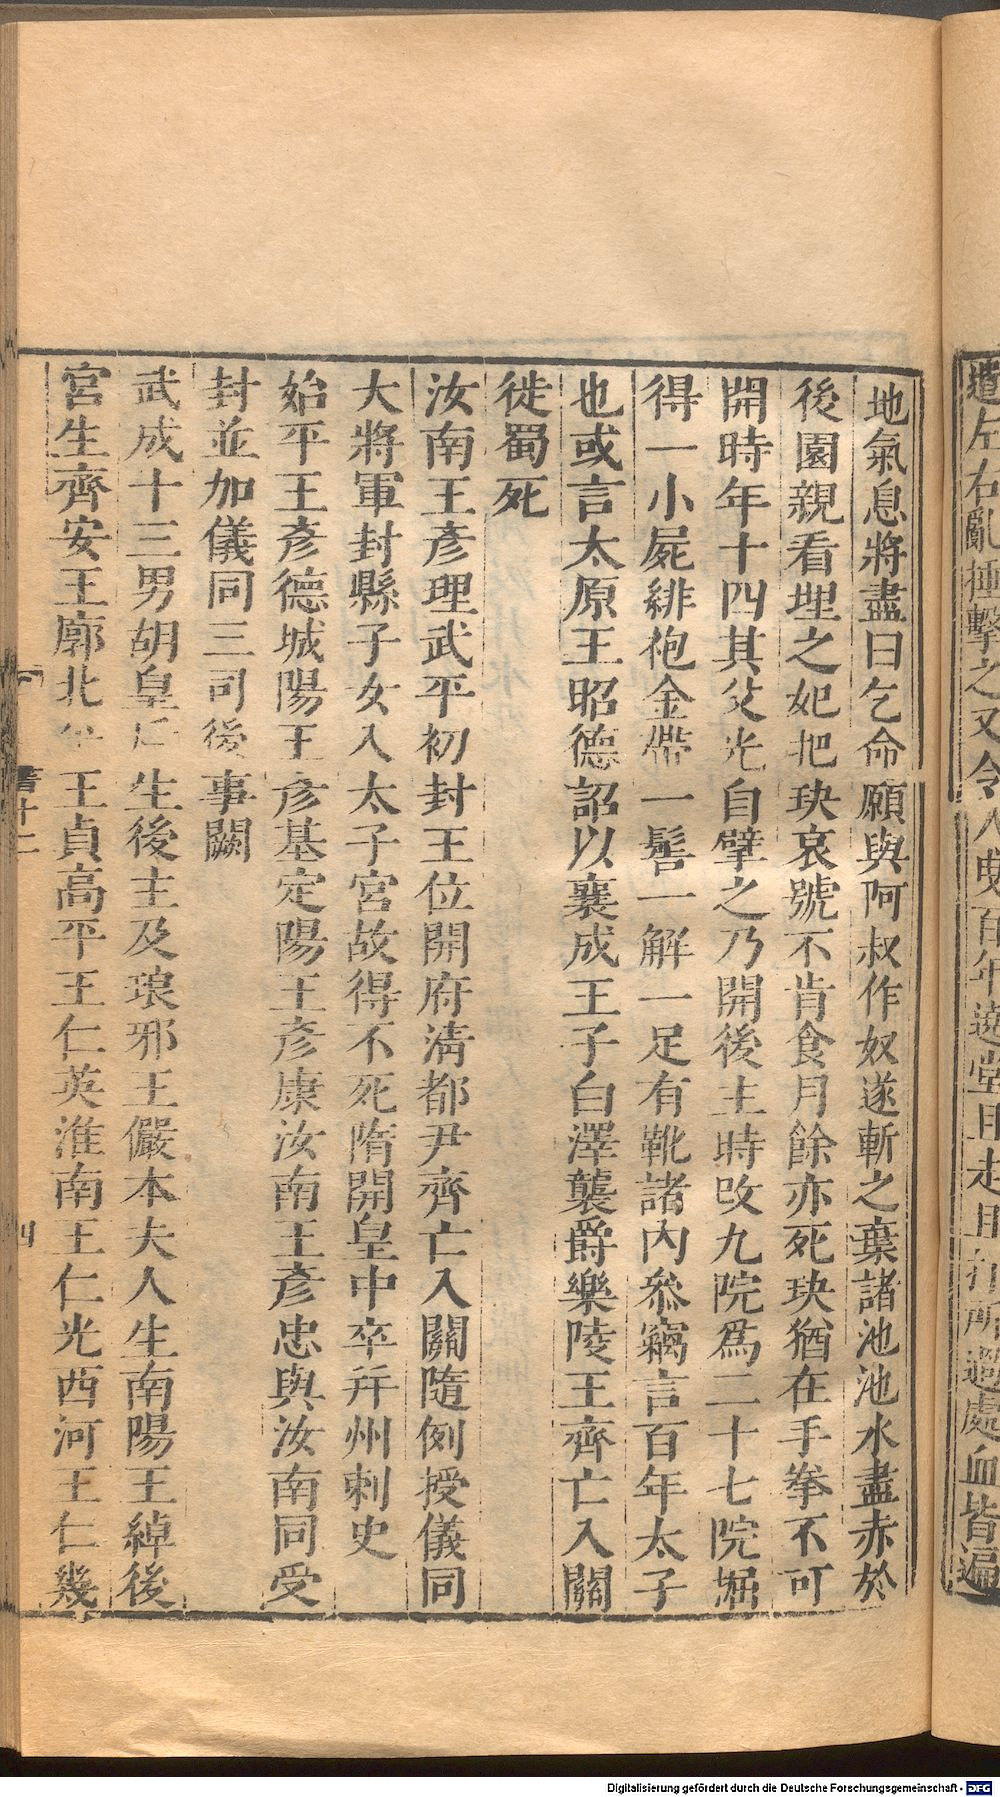 遣左右亂捶擊之又令人曳百年遶堂且走且打所過處血皆遍
地氣息將盡曰乞命願與阿叔作奴遂斬之棄諸池池水盡赤於
後園親看埋之妃把玦哀號不肯食月餘亦死玦猶在手拳不可
開時年十四其父光自擘之乃開後主時改九院爲二十七院掘
得一小屍緋袍金帶一髻一解一足有靴諸內叅竊言百年太子
也或言太原王昭德詔以襄成王子白澤襲爵樂陵王齊亡入關
徙蜀死
汝南王彥理武平初封王位開府淸都尹齊亡入關隨例授儀同
大將軍封縣子女入太子宮故得不死隋開皇中卒幷州刺史
始平王彥德城陽王彥基定陽王彥康汝南王彥忠與汝南同受
封並加儀同三司後事闕
武成十三男胡皇后生後主及琅邪王儼本夫人生南陽王綽後
宮生齊安王廓北平王貞高平王仁英淮南王仁光西河王仁幾
書十二
四
Digitalisierung gefördert durch die Deutsche Forschungsgemeinschaft - DFG